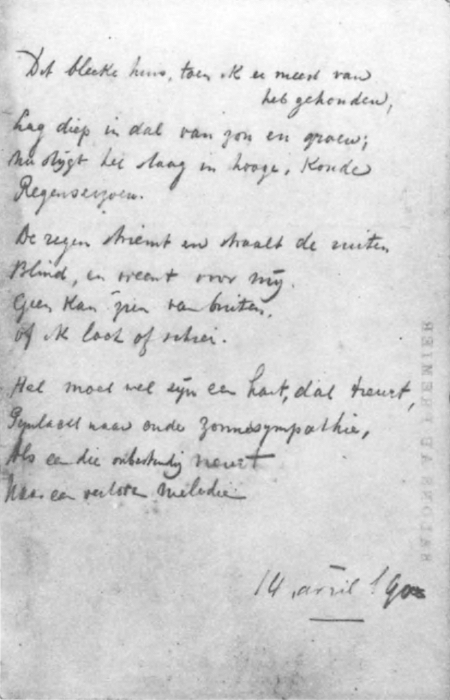 Dit bleeke huis, toen ik er meest van
heb gehouden,
Lag diep in dal van zon en groen;
Nu stijgt het in hooge, koude
Regenseizoen.
De regen striemt en straalt de ruiten
Blind, en weent voor mij.
Geen kan zien van buiten,
of ik lach of schrei.
Het moet wel zijn een hart, dat treurt,
naar oude zonnesympathie,
Als een die onbestendig neurt
Naar een verloren melodie
14 avril 190
SALONS AU PREMIER